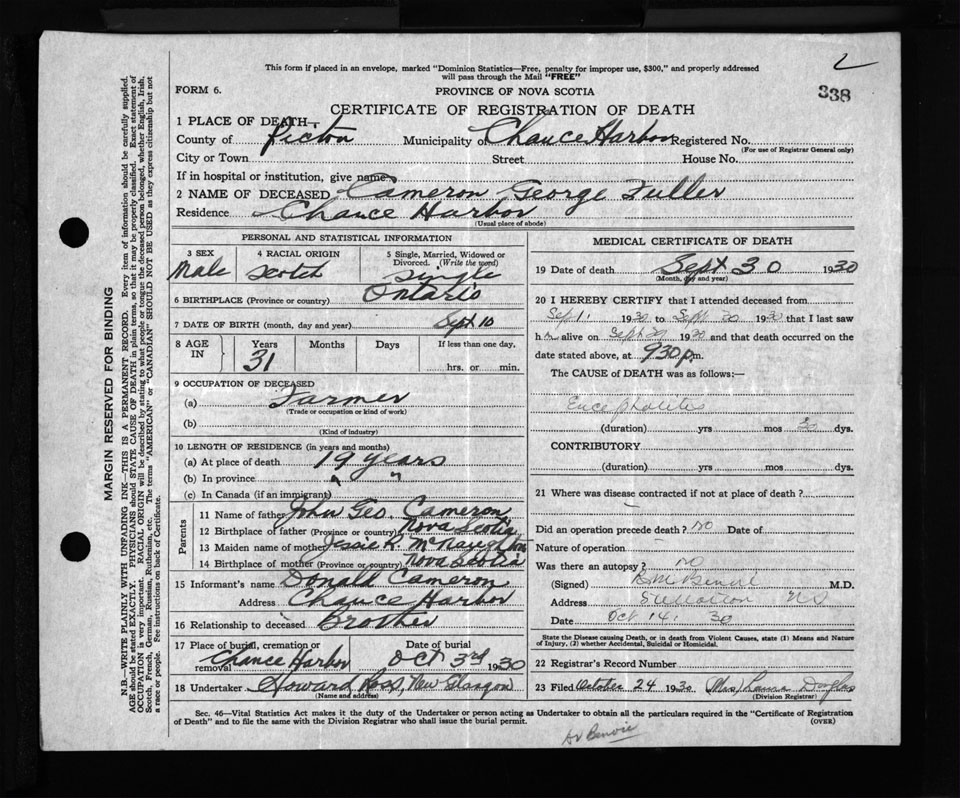 This form if placed in an envelope, marked "Dominion Statistics—Free, penalty for improper use, $300," and properly addressed
will pass through the Mail "FREE"
2
338
FORM 6.
PROVINCE OF NOVA SCOTIA
CERTIFICATE OF REGISTRATION OF DEATH
1 PLACE OF DEATH—
County of Pictou Municipality of Chance Harbor Registered No.
(For use of Registrar General only)
City or Town Street House No.
If in hospital or institution, give name
2 NAME OF DECEASED Cameron George Fuller
Residence Chance Harbor
(Usual place of abode)
PERSONAL AND STATISTICAL INFORMATION
3 SEX Male
4 RACIAL ORIGIN Scotch
5 Single, Married, Widowed or Divorced. (Write the word) Single
6 BIRTHPLACE (Province or country) Ontario
7 DATE OF BIRTH (month, day and year) Sept 10
8 AGE IN Years 31 Months Days If less than one day, hrs. or min.
9 OCCUPATION OF DECEASED
(a) Farmer
(Trade or occupation or kind of work)
(b)
(Kind of industry)
10 LENGTH OF RESIDENCE (in years and months)
(a) At place of death 19 years
(b) In province " "
(c) In Canada (if an immigrant)
Parents
11 Name of father John Geo. Cameron
12 Birthplace of father (Province or country) Nova Scotia
13 Maiden name of mother Jessie R. McNaughton
14 Birthplace of mother (Province or country) Nova Scotia
15 Informant's name Donald Cameron
Address Chance Harbor
16 Relationship to deceased Brother
17 Place of burial, cremation or removal Chance Harbor Date of burial Oct 3rd 1930
18 Undertaker Howard Ross, New Glasgow
(Name and address)
MEDICAL CERTIFICATE OF DEATH
19 Date of death Sept 30 1930
(Month, day and year)
20 I HEREBY CERTIFY that I attended deceased from
Sept 1, 1930 to Sept 30 1930 that I last saw
him alive on Sept 29 1930 and that death occurred on the
date stated above, at 9 30 p.m.
The CAUSE of DEATH was as follows:—
Encephalitis
(duration) yrs mos 30 dys.
CONTRIBUTORY
(duration) yrs. mos. dys.
21 Where was disease contracted if not at place of death?
Did an operation precede death? No Date of
Nature of operation
Was there an autopsy? no
(Signed) Benvie M.D.
Address Stellarton NS
Date Oct 14, 30
State the Disease causing Death, or in death from Violent Causes, state (1) Means and Nature
of Injury, (2) whether Accidental, Suicidal or Homicidal.
22 Registrar's Record Number
23 Filed October 24 1930 (Mrs) Laura Douglas
(Division Registrar)
Sec. 46—Vital Statistics Act makes it the duty of the Undertaker or person acting as Undertaker to obtain all the particulars required in the "Certificate of Registration
of Death" and to file the same with the Division Registrar who shall issue the burial permit.
(OVER)
Dr Benvie
MARGIN RESERVED FOR BINDING
N.B.—WRITE PLAINLY WITH UNFADING INK—THIS IS A PERMANENT RECORD. Every item of information should be carefully supplied.
AGE should be stated EXACTLY. PHYSICIANS should STATE CAUSE OF DEATH in plain terms, so that it may be properly classified. Exact statement of
OCCUPATION is very important. RACIAL ORIGIN will be described by stating to what people or tongue the deceased person belonged, whether English, Irish,
Scotch, French, German, Russian, Ruthenian, etc. The terms "AMERICAN" or "CANADIAN" SHOULD NOT BE USED as they express citizenship but not
a race or people. Fee instructions on back of Certificate.